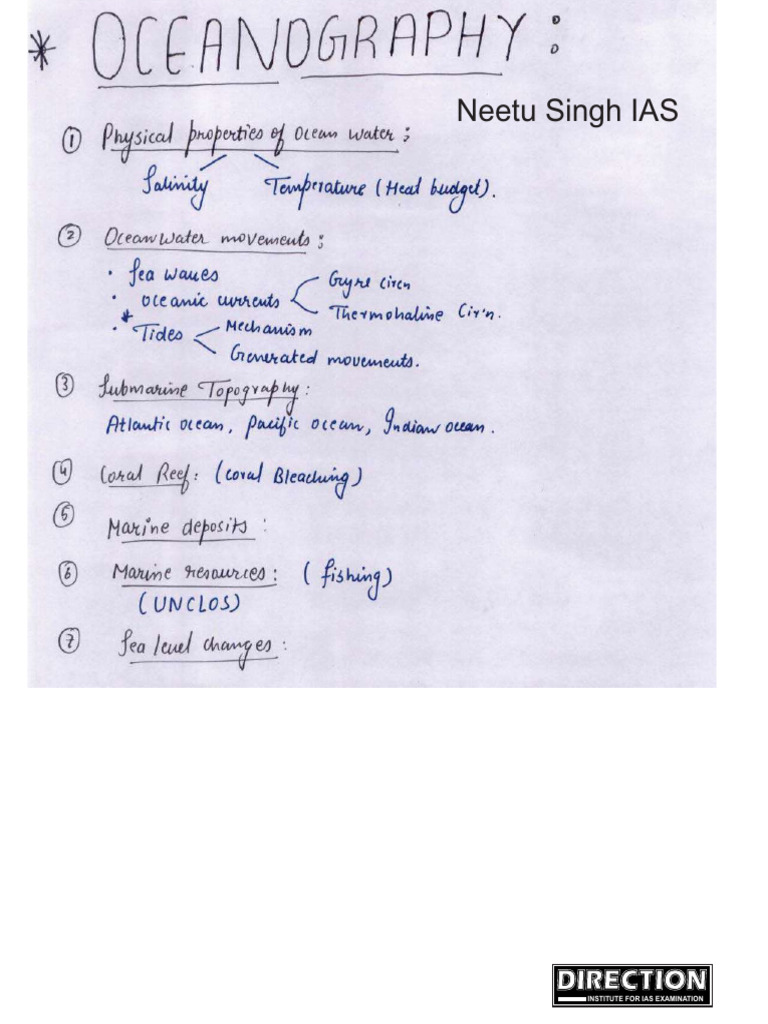 * OCEANOGRAPHY:
Neetu Singh IAS
① Physical properties of ocean water;
Salinity Temperature (Heat budget).
② Ocean water movements;
· Sea waves
Gyre circn
· oceanic currents
Thermohaline Cir'n.
* · Tides
Mechanism
Generated movements.
③ Submarine Topography:
Atlantic ocean, Pacific ocean, Indian ocean.
④ Coral Reef: (coral Bleaching)
⑤ Marine deposits:
⑥ Marine resources: (fishing)
(UNCLOS)
⑦ Sea level changes:
DIRECTION
INSTITUTE FOR IAS EXAMINATION